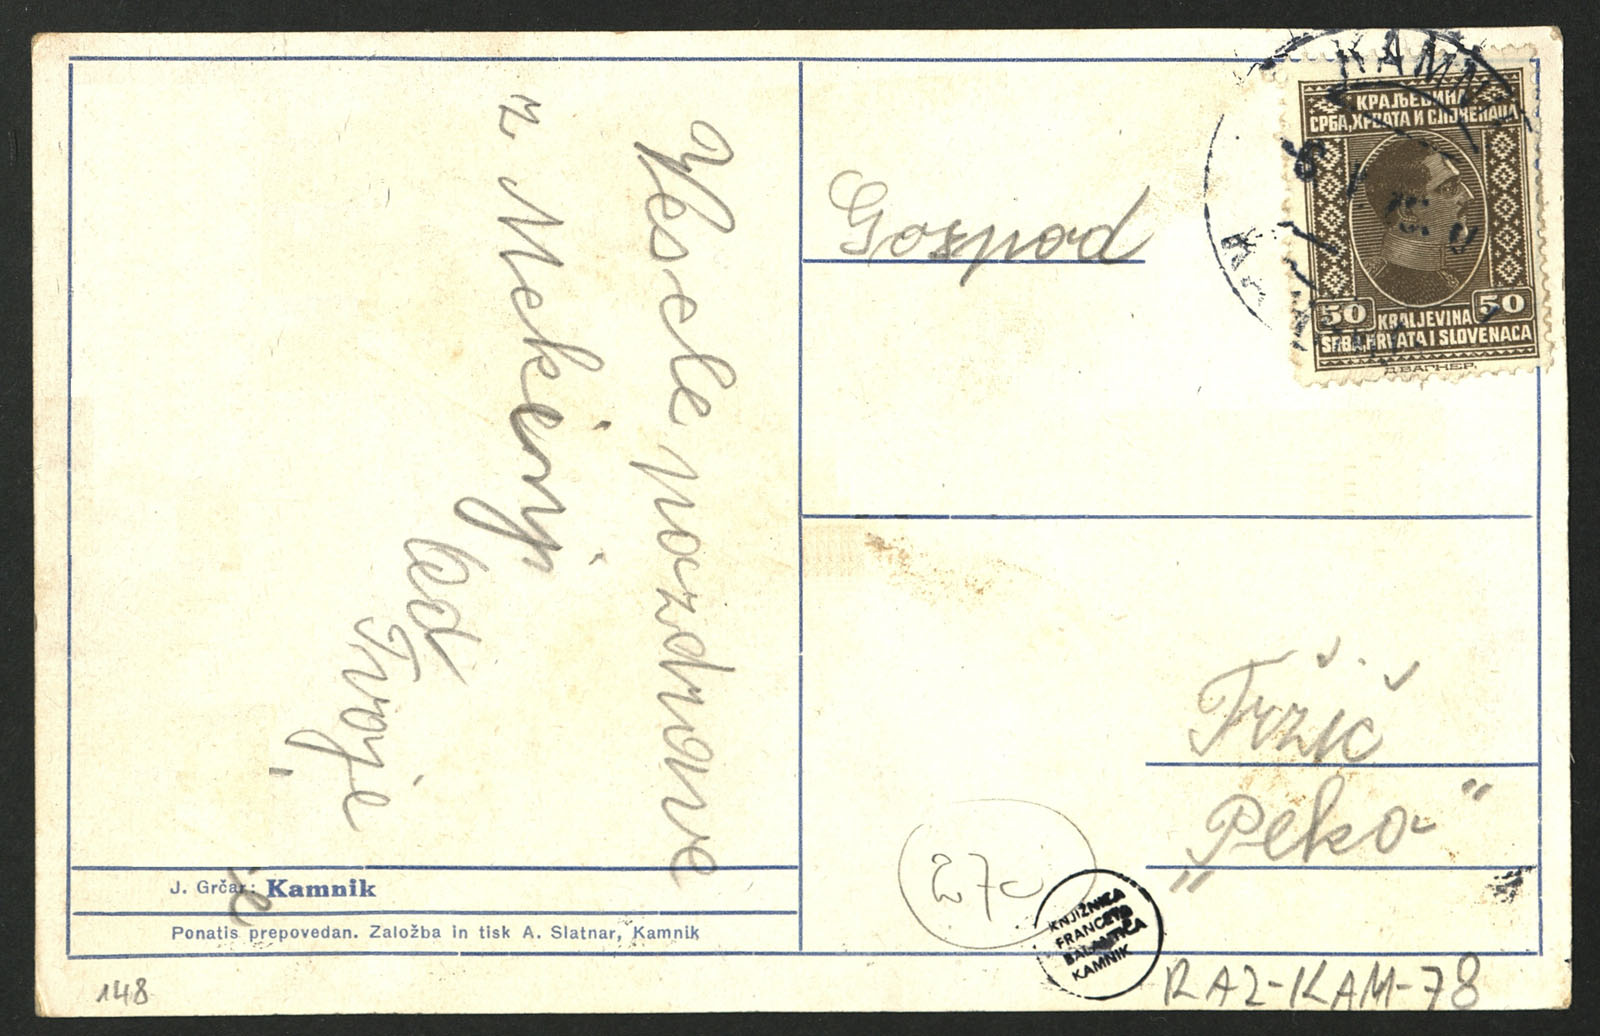 Vesele pozdrave
z Mekinj
od
Tvoje
J. Grčar: Kamnik
Ponatis prepovedan. Založba in tisk A. Slatnar, Kamnik
148
КРАЉЕВИНА
СРБА, ХРВАТА И СЛОВЕНАЦА
50 50
KRALJEVINA
SRBA, HRVATA I SLOVENACA
Д. ВАГНЕР.
Gospod
Tržič
„Peko"
270
KNJIŽNICA
FRANCETA
BALANTIČA
KAMNIK
RAZ-KAM-78